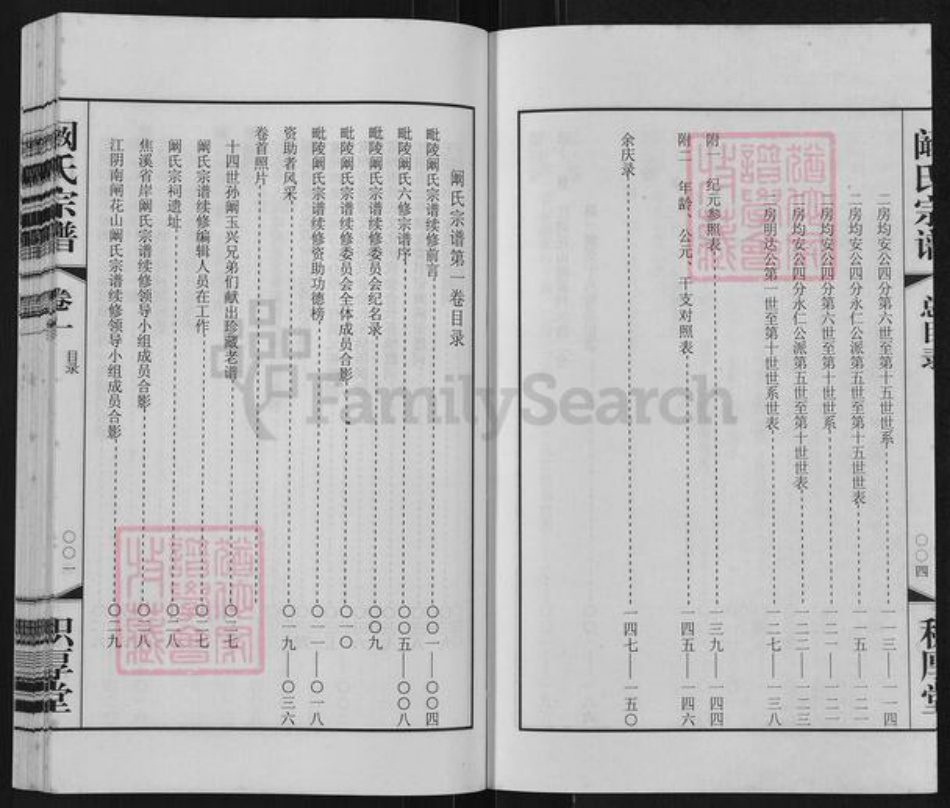 阚氏宗谱
总目录
〇〇四
积厚堂
二房均安公四分第六世至第十五世世系 一一三——一一四
二房均安公四分永仁公派第五世至第十五世世表 一一五——一二一
二房均安公四分第六世至第十世世系 一二一——一二二
二房均安公四分永仁公派第五世至第十世世表 一二二——一二三
二房明达公第一世至第十世世系世表 一二七——一三八
附一 纪元参照表 一三九——一四四
附二 年龄、公元、干支对照表 一四五——一四六
余庆录 一四七——一五〇
阚氏宗谱第一卷目录
毗陵阚氏宗谱续修前言 〇〇一——〇〇四
毗陵阚氏六修宗谱序 〇〇五——〇〇八
毗陵阚氏宗谱续修委员会纪名录 〇〇九
毗陵阚氏宗谱续修委员会全体成员合影 〇一〇
毗陵阚氏宗谱续修资助功德榜 〇一一——〇一八
资助者风采 〇一九——〇三六
卷首照片
十四世孙阚玉兴兄弟们献出珍藏老谱 〇二七
阚氏宗谱续修编辑人员在工作 〇二七
阚氏宗祠遗址 〇二八
焦溪省岸阚氏宗谱续修领导小组成员合影 〇二八
江阴南闸花山阚氏宗谱续修领导小组成员合影 〇二九
阚氏宗谱
卷一
目录
〇〇一
积厚堂
FamilySearch